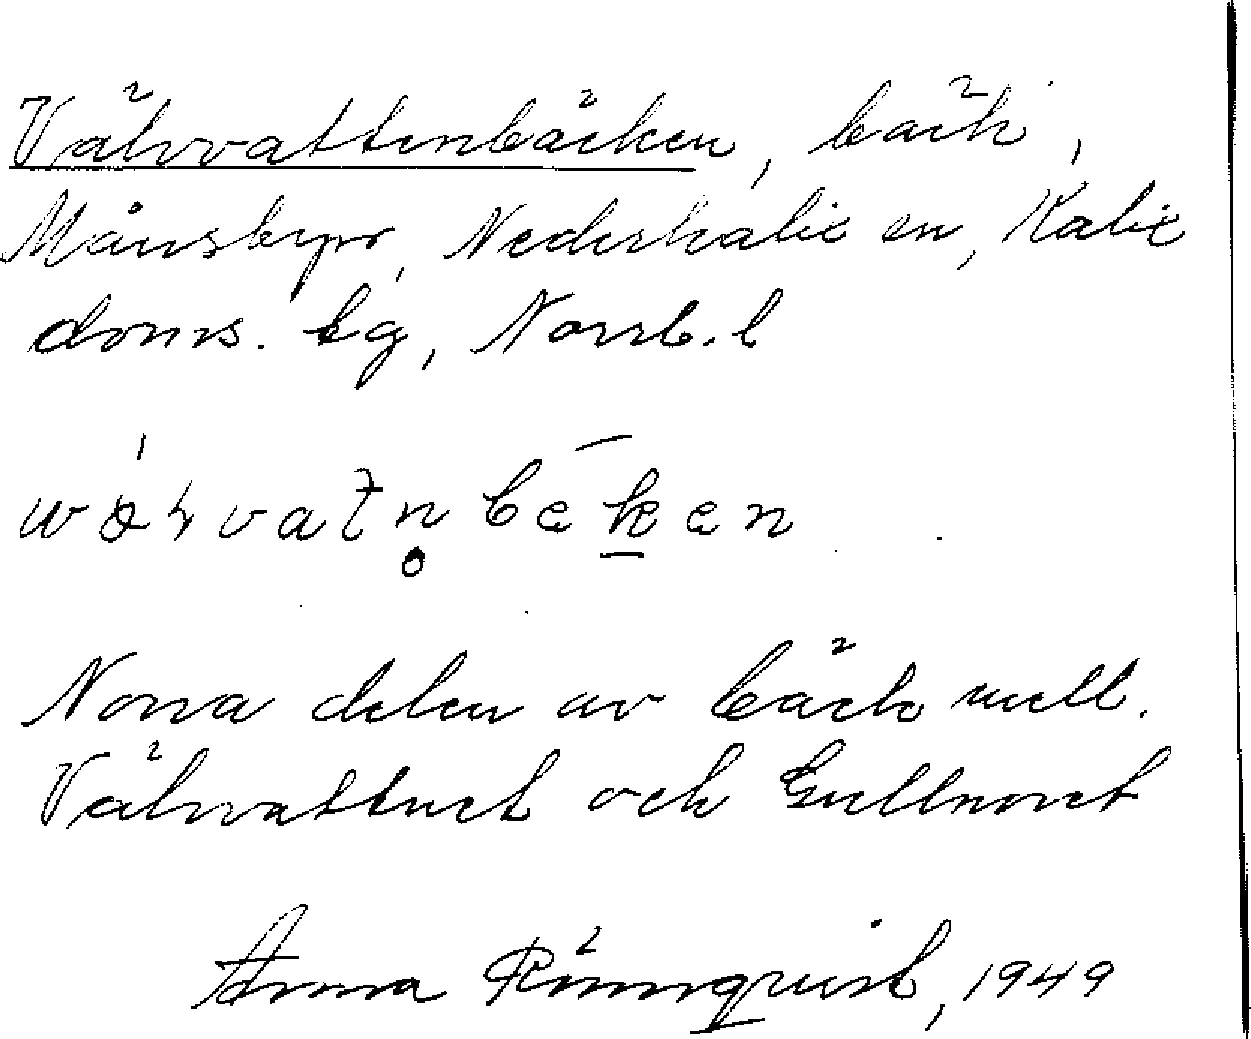 Välvattenbäcken, bäck,
Månsbyn, Nederkalix sn, Kalix
doms. lg, Norrb. l
Norra delen av bäck mell.
Välvattnet och Gullnoret
Anna Rönnqvist, 1949